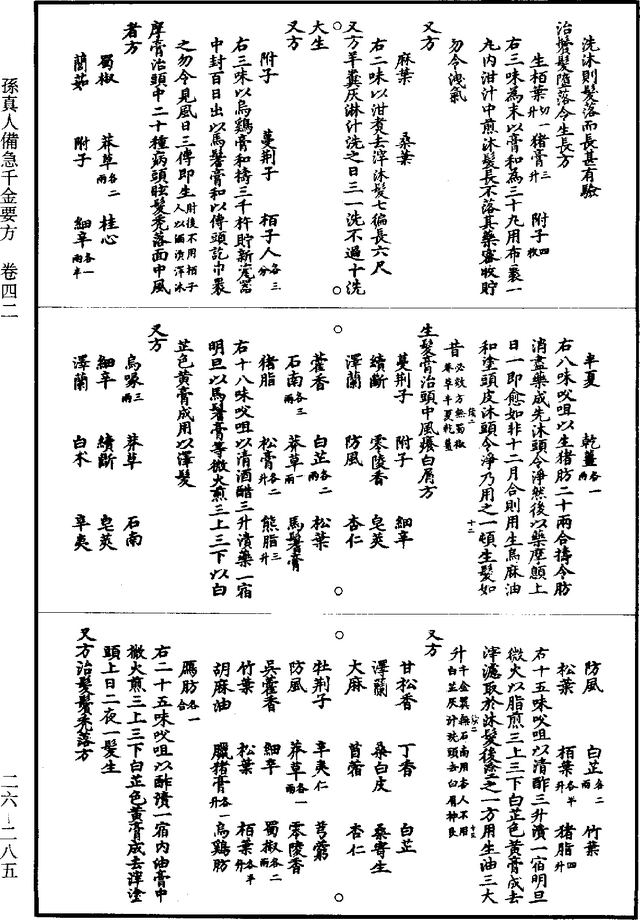 洗沐則髮落而長甚有驗
治鬢髮墮落令生長方
生栢葉切一升 豬膏三升 附子四枚
右三味為末以膏和為三十九用布裹一
丸內泔汁中煎沐髮長不落其藥密收貯
勿令洩氣
又方
麻葉 桑葉
右二味以泔煮去滓沐髮七徧長六尺
又方羊糞灰淋汁洗之日三一洗不過十洗
大生
又方
附子 蔓荆子 栢子人各三分
右三味以烏鷄膏和擣三千杵貯新瓷器
中封百日出以馬鬐膏和以傅頭訖巾裹
之勿令見風日三傅即生肘後不用栢子人以酒漬澤沐
摩膏治頭中二十種病頭眩髮秃落面中風
者方
蜀椒 莽草各二兩 桂心
䕡茹 附子 細辛各一兩半
半夏 乾薑各一兩
右八味㕮咀以生豬肪二十兩合擣令肪
消盡藥成先沐頭令淨然後以藥摩顖上
日一即愈如非十二月合則用生烏麻油
和塗頭皮沐頭令淨乃用之一頓生髮如
昔必效方無蜀椒莽草半夏乾薑
生髮膏治頭中風癢白屑方
蔓荆子 附子 細辛
續斷 零陵香 皂莢
澤蘭 防風 杏仁
藿香 白芷各二兩 松葉
石南各三兩 莽草一兩 馬鬐膏
豬脂 松膏各二升 熊脂三升
右十八味㕮咀以清酒醋三升漬藥一宿
明旦以馬鬐膏等微火煎三上三下以白
芷色黃膏成用以澤髮
又方
烏喙三兩 莽草 石南
細辛 續斷 皂莢
澤蘭 白术 辛夷
防風 白芷各二兩 竹葉
松葉 栢葉各半升 豬脂四升
右十五味㕮咀以清酢三升漬一宿明旦
微火以脂煎三上三下白芷色黃膏成去
滓濾取於沐髮後塗之一方用生油三大
升千金翼無石南用杏人不用白芷灰汁洗頭去白屑神良
又方
甘松香 丁香 白芷
澤蘭 桑白皮 桑寄生
大麻 苜蓿 杏仁
牡荆子 辛夷仁 芎藭
防風 莽草各一兩 零陵香
吳藿香 細辛 蜀椒各二兩
竹葉 松葉 栢葉各半升
胡麻油 臘猪膏各一升 烏鷄肪
鴈肪各一合
右二十五味㕮咀以酢漬一宿內油膏中
微火煎三上三下白芷色黃膏成去滓塗
頭上日二夜一髮生
又方治髮鬢秃落方
孫真人備急千金要方 卷四二
二六—二八五